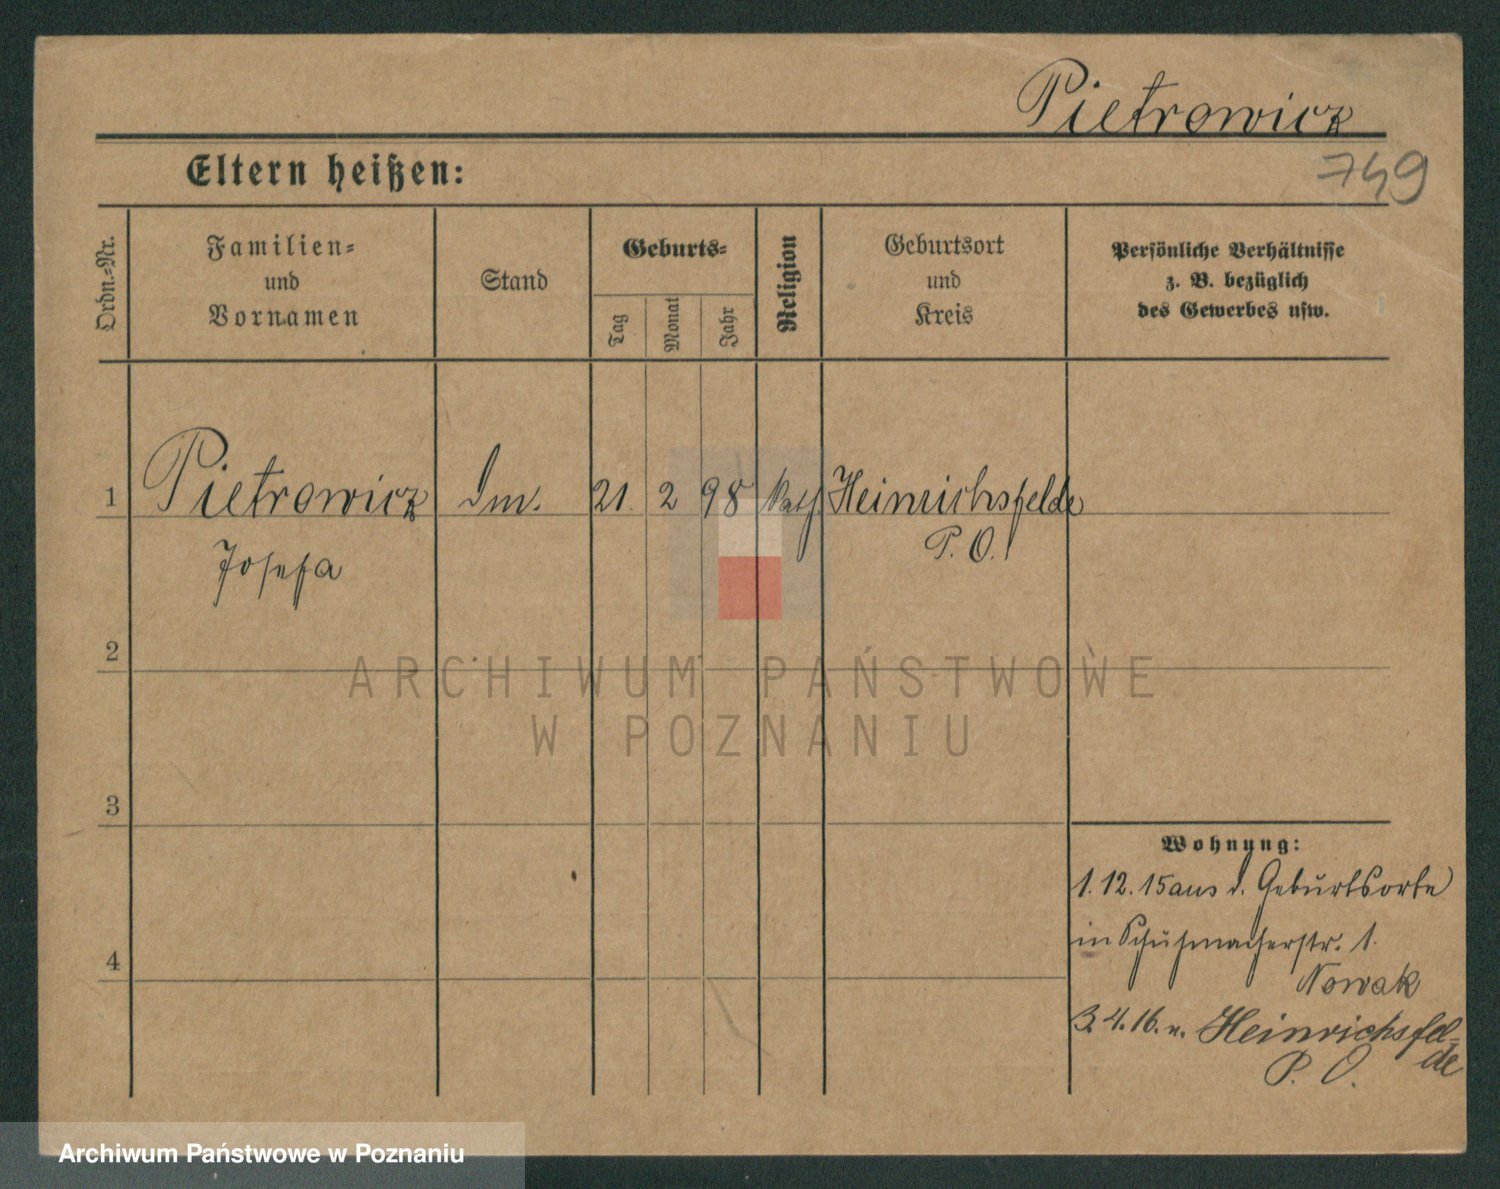 Pietrowicz
749
Eltern heißen:
Ordn.-Nr.
Familien-
und
Vornamen
Stand
Geburts-
Tag
Monat
Jahr
Religion
Geburtsort
und
Kreis
Persönliche Verhältnisse
z. B. bezüglich
des Gewerbes usw.
1 Pietrowicz 21. 2 98 kath Heinrichsfelde
Josefa P. O.
2
3
4
ARCHIWUM PAŃSTWOWE
W POZNANIU
Wohnung:
1. 12. 15 aus d. Geburtsorte
in Schuhmacherstr. 1.
Nowak
3. 4. 16. n. Heinrichsfel-
de
P. O.
Archiwum Państwowe w Poznaniu